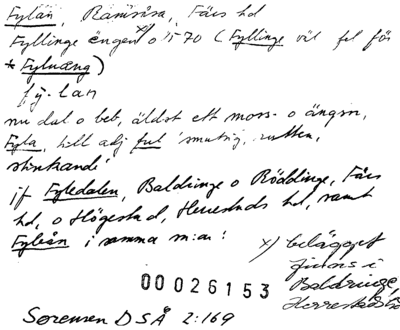 Fylån, Ramsåsa, Färs hd
Fyllinge ängen x) o 1570 (Fyllinge väl fel för
* Fyluæng)
fy-lan
nu dal o beb, äldst ett moss- o ängsn,
Fyla, till adj ful 'smutsig, rutten,
stinkande'
jf Fyledalen, Baldringe o Röddinge, Färs
hd, o Högestad, Herrestads hd, samt
Fyleån i samma m:a!
x) belägget
finns i
Baldringe,
Herrestads
00026153
Sørensen DSÅ 2:169